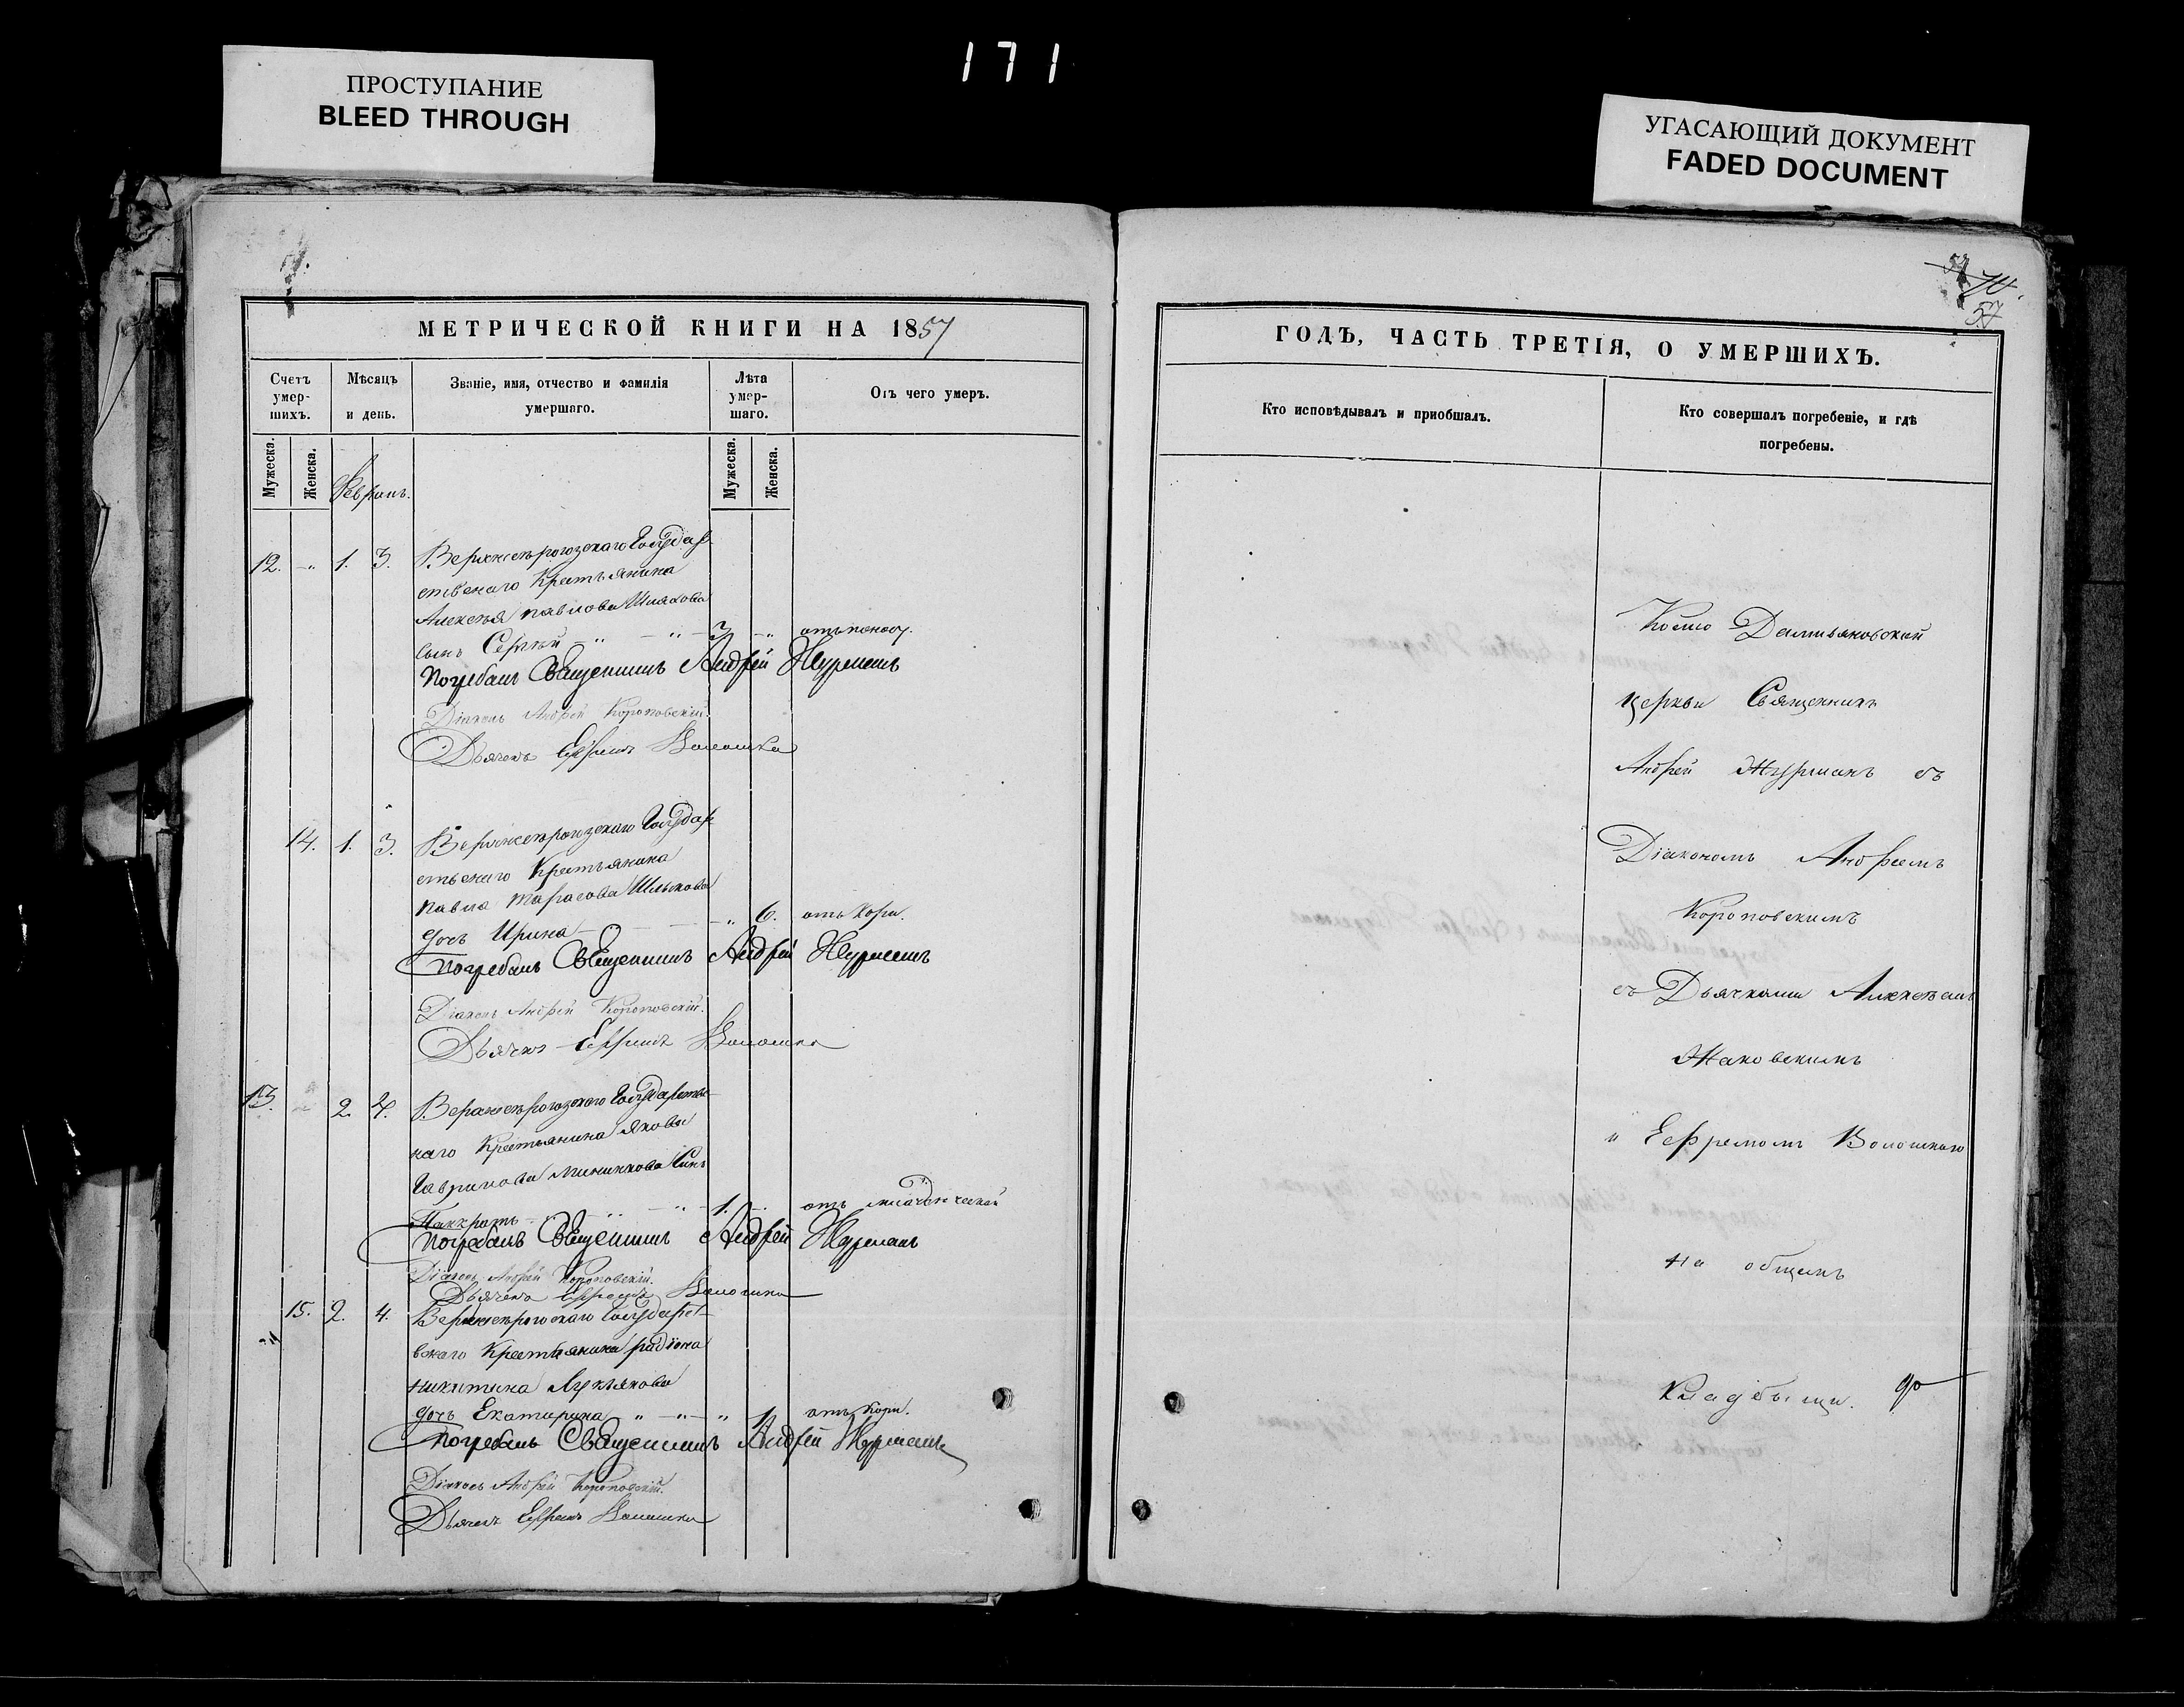 171
ПРОСТУПАНИЕ
BLEED THROUGH
УГАСАЮЩИЙ ДОКУМЕНТ
FADED DOCUMENT
МЕТРИЧЕСКОЙ КНИГИ НА 1857
Счетъ умер-шихъ.
Мѣсяцъ и день.
Званіе, имя, отчество и фамилія умершаго.
Лѣта умер-шаго.
Отъ чего умеръ.
Мужеска.
Женска.
Мужеска.
Женска.
12. 1. 3. Верхнерогозскаго Государ
ственаго Крестьянина
Алексѣя павлова
сынъ Сергѣй 3 отъ поносу.
Погребалъ Священникъ Андрей Журманъ
Діаконъ Андрей Короповскій.
Дьячекъ Ефремъ Волошка
14. 1. 3. Государ
ственаго Крестьянина
павла тарасова
дочь Ирина 6. отъ Кори.
Погребалъ Священникъ Андрей Журманъ
Діаконъ Андрей Короповскій.
Дьячкъ Ефремъ Волошка
13. 2. 4. Государстве
наго Крестьянина Якова
Гаврилова Сынъ
Панкратъ 1. отъ младенческой
Погребалъ Священникъ Андрей Журманъ
Діаконъ Андрей Короповскій.
Дьячекъ Ефремъ Волошка
15. 2. 4. Государст
Крестьянина радіона
никитина Лукьянова
дочь Екатирина 1. отъ Кори.
Погребалъ Священникъ Андрей Журманъ
Діаконъ Андрей Короповскій.
Дьячекъ Ефремъ Волошка
57
ГОДЪ, ЧАСТЬ ТРЕТІЯ, О УМЕРШИХЪ.
Кто исповѣдывалъ и приобщалъ.
Кто совершалъ погребеніе, и гдѣ погребены.
Космо Даміяновской
церкви Священникъ
Андрей Журманъ съ
Діакономъ Андреемъ
Короповскимъ
съ Дьячками Алексѣемъ
Жаковскимъ
и Ефремомъ Волошкою
на общемъ
Кладбыщи.